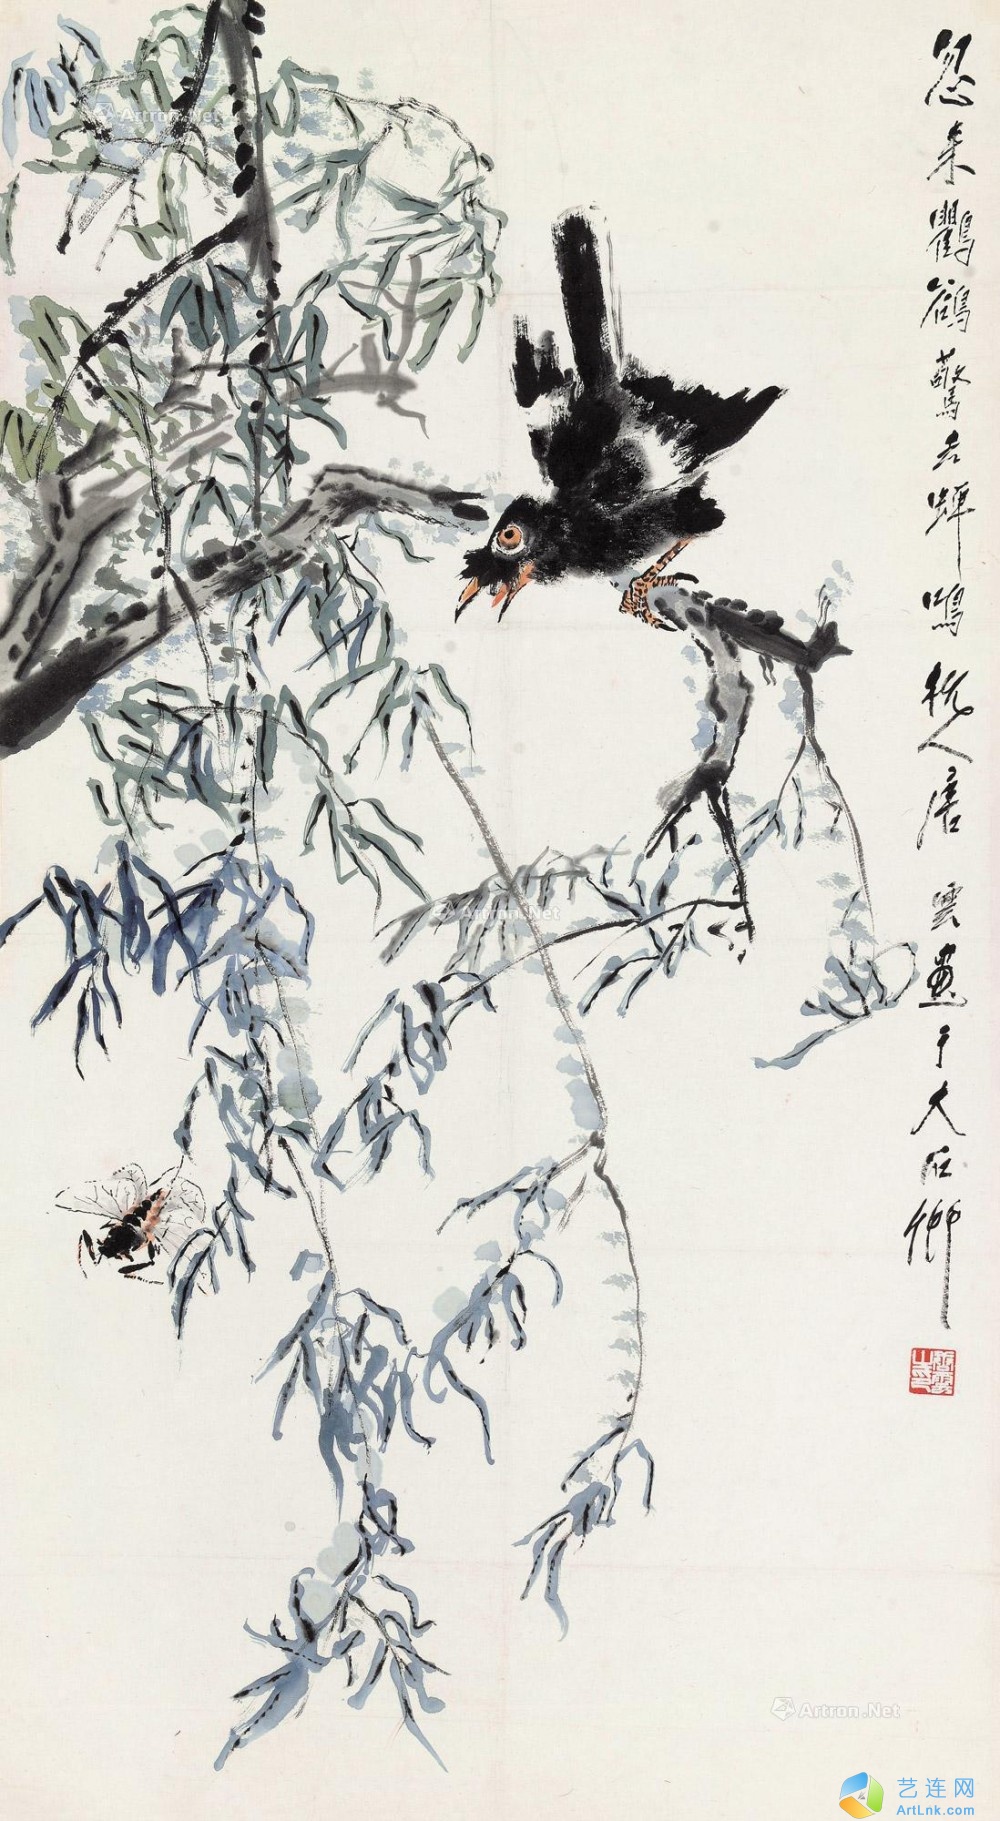 忽来鸜鹆惊去蝉鸣杭人唐云画于大石乡
Artron.Net
Artron.Net
Artron.Net
艺连网
ArtLnk.com